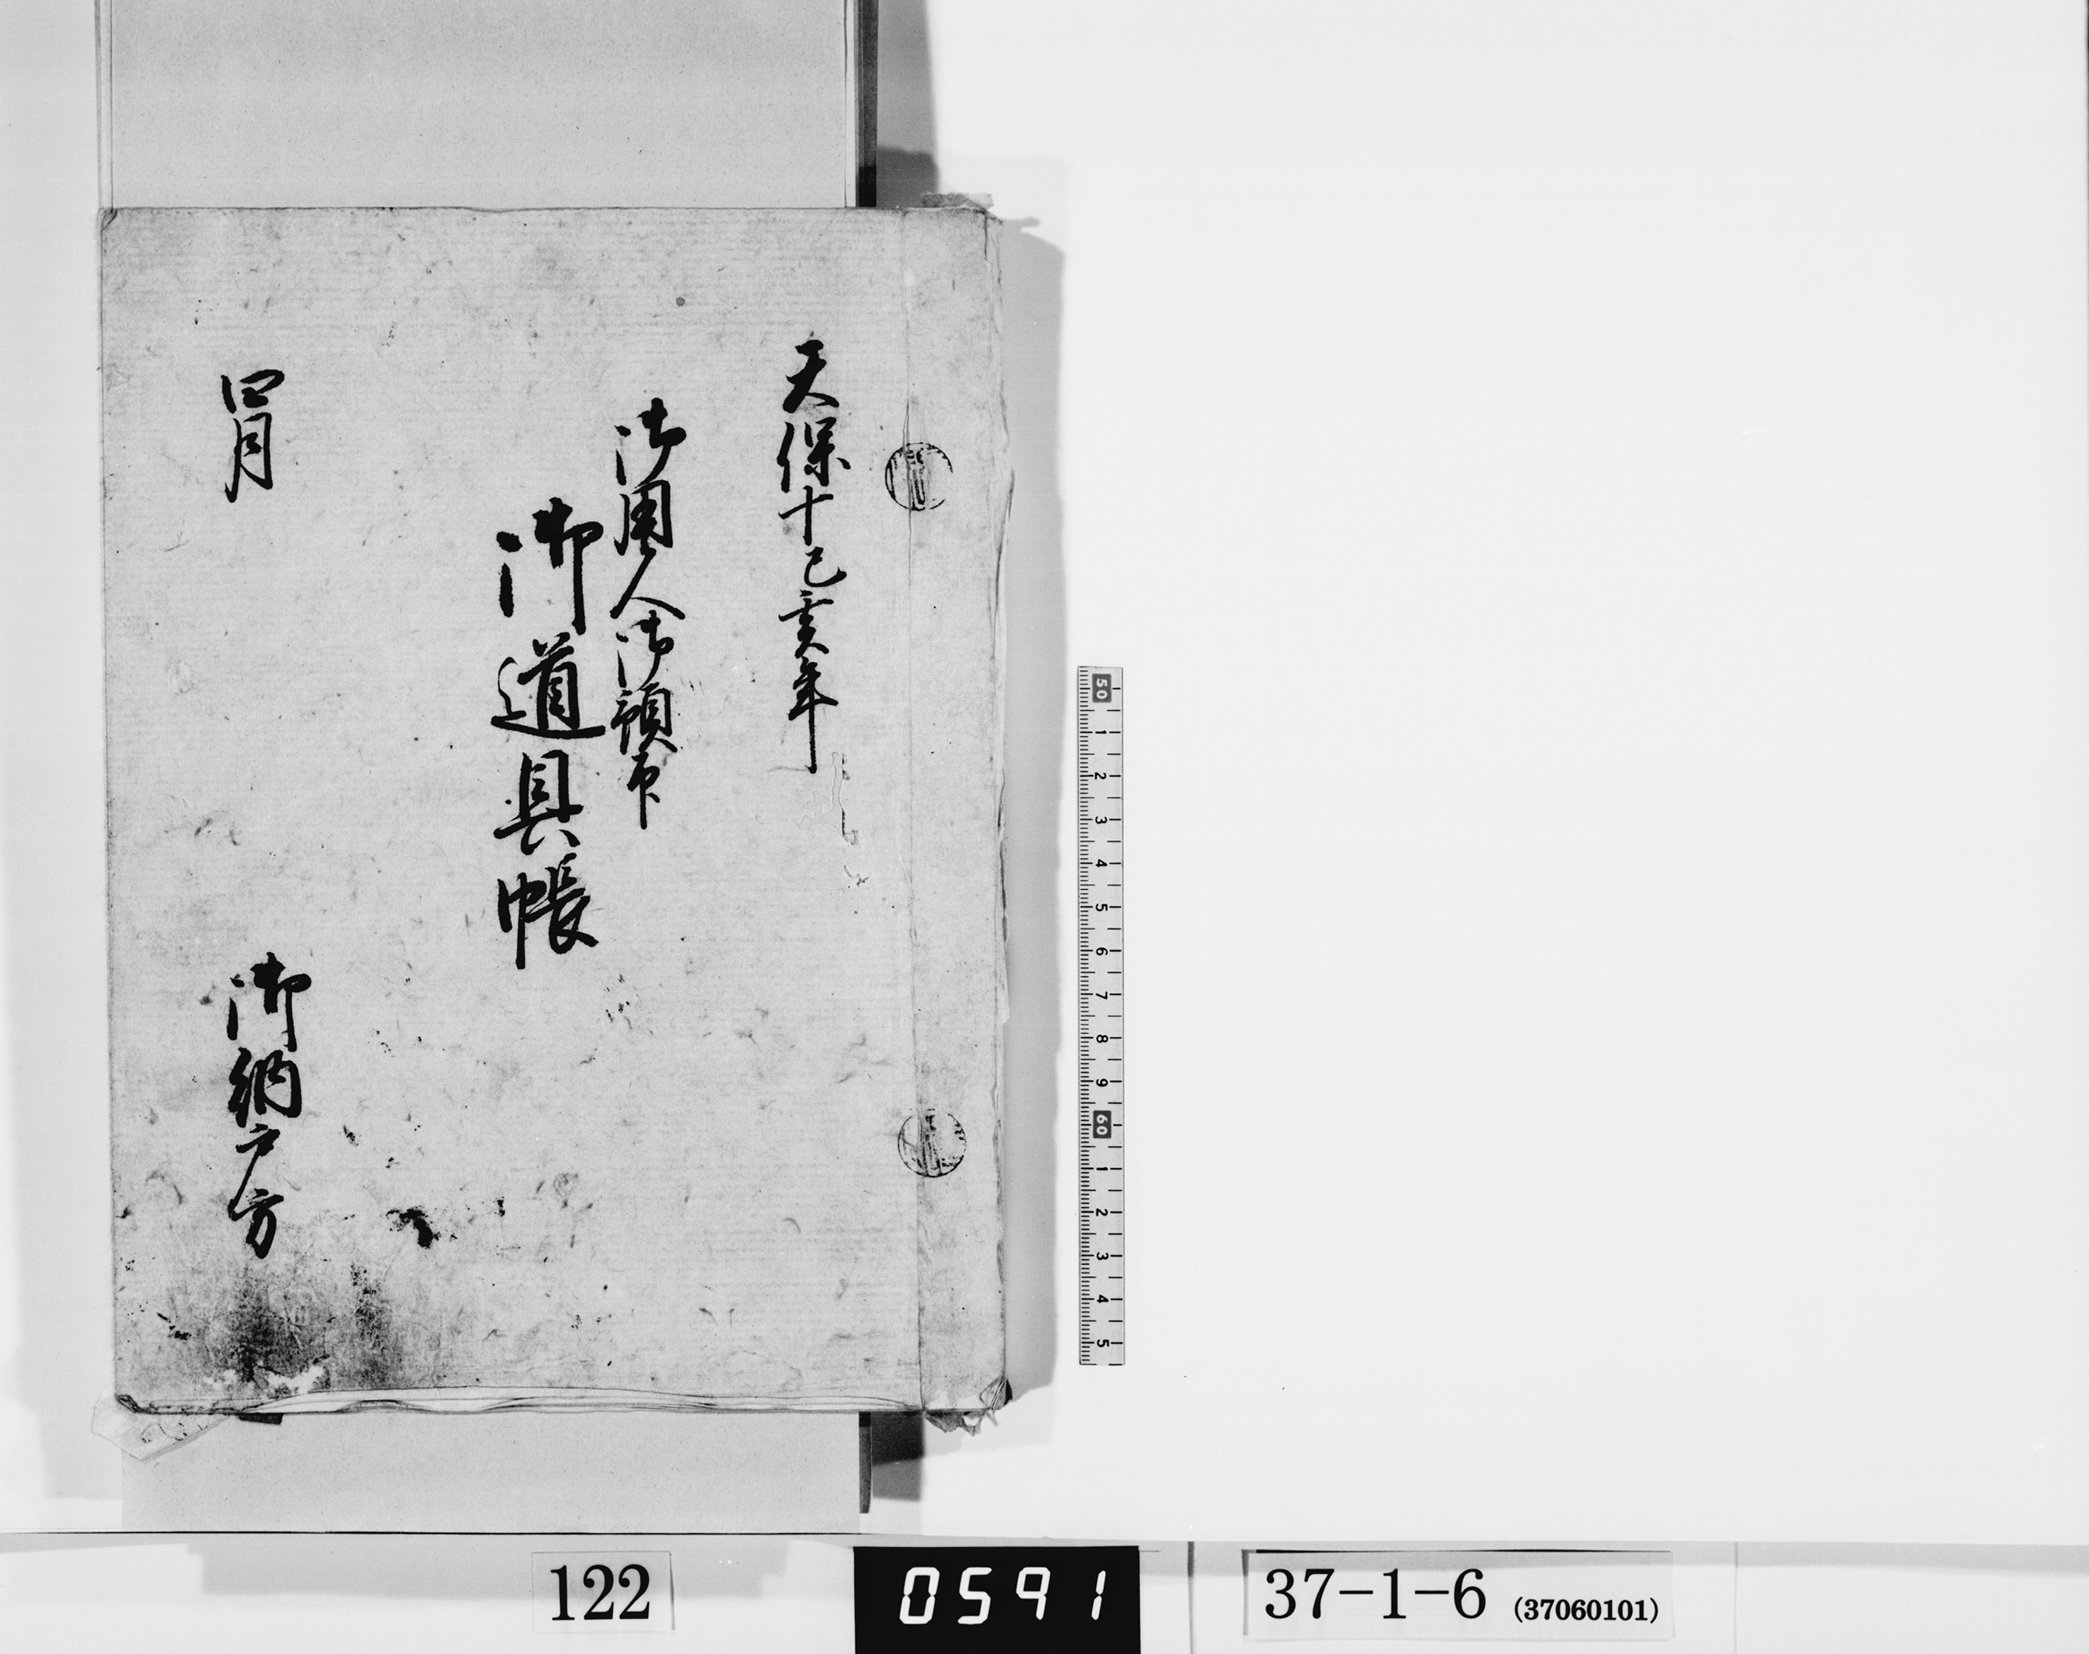 天保十己亥年
御用人御預印
御道具帳
四月
御納戸方
50 1 2 3 4 5 6 7 8 9 60 1 2 3 4 5
122
0591
37-1-6 (37060101)